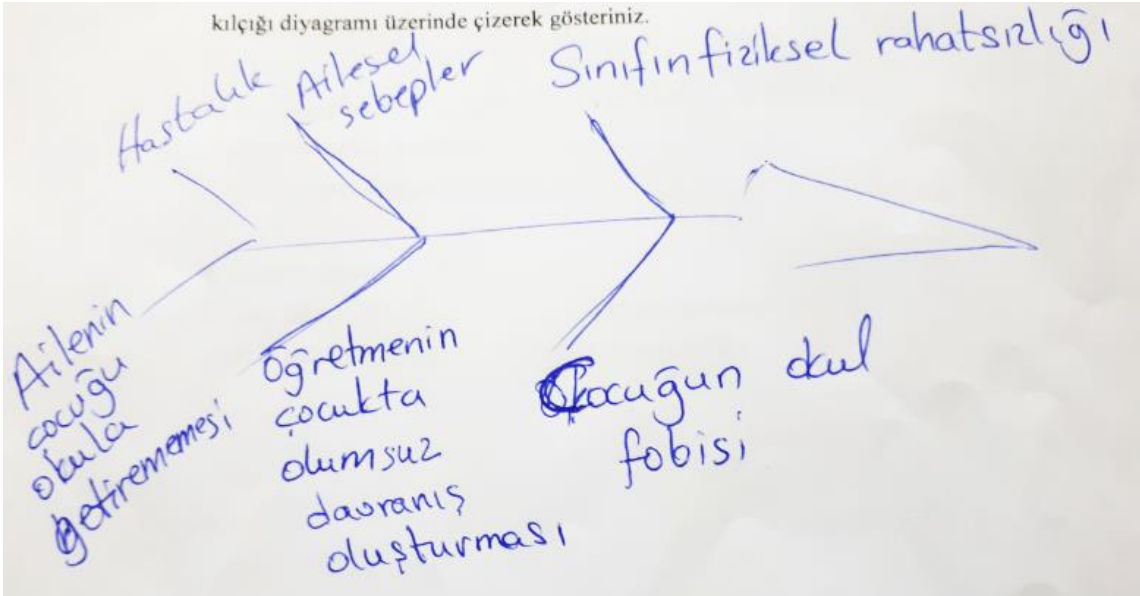 kılçığı diyagramı üzerinde çizerek gösteriniz.
Hastalık
Ailesel
sebepler
Sınıfın fiziksel rahatsızlığı
Ailenin
çocuğu
okula
getirememesi
Öğretmenin
çocukta
olumsuz
davranış
oluşturması
Çocuğun okul
fobisi